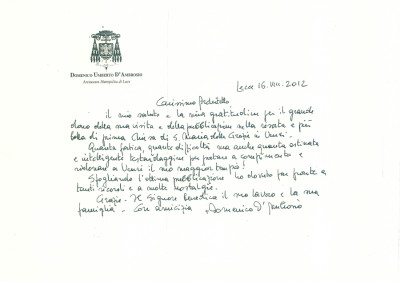 DOMENICO UMBERTO D'AMBROSIO
Arcivescovo Metropolita di Lecce
Lecce 16. VIII. 2012
Carissimo
il mio saluto e la mia gratitudine per il grande
dono della sua visita e della pubblicazione sulla restata e più
bella di prima Chiesa di S. Maria delle Grazie a
Quanta fatica, quante difficoltà ma anche quanta ostinata
e intelligente testardaggine per portare a compimento e
ridonare a il suo maggior tempio!
Sfogliando l'ultima pubblicazione ho dovuto far fronte a
tanti ricordi e a molte nostalgie.
Grazie. Il Signore benedica il suo lavoro e la sua
famiglia. Con amicizia + Domenico D'Ambrosio